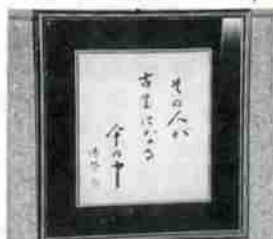 その人が
古里になる
の中